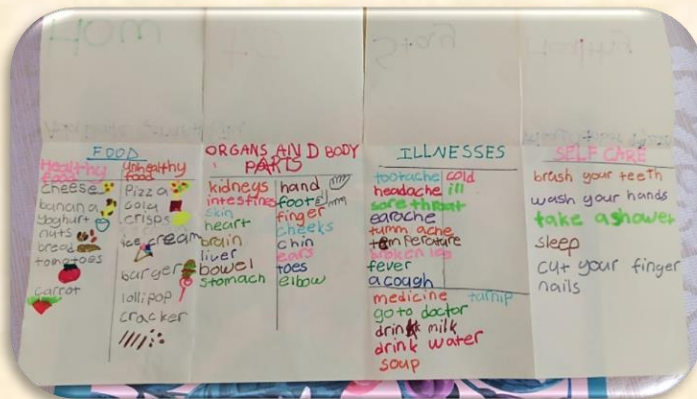 FOOD
Healthy food
cheese
banana
yoghurt
nuts
bread
tomatoes
carrot
unhealthy food
pizza
cola
crisps
ice cream
burger
lollipop
cracker
ORGANS AND BODY
PARTS
kidneys
intestines
skin
heart
brain
liver
bowel
stomach
hand
foot
finger
cheeks
chin
ears
toes
elbow
ILLNESSES
tootache cold
headache ill
sore throat
earache
tumm ache
temperature
broken leg
fever
a cough
medicine turnip
go to doctor
drink milk
drink water
soup
SELF CARE
brush your teeth
wash your hands
take a shower
sleep
cut your finger
nails